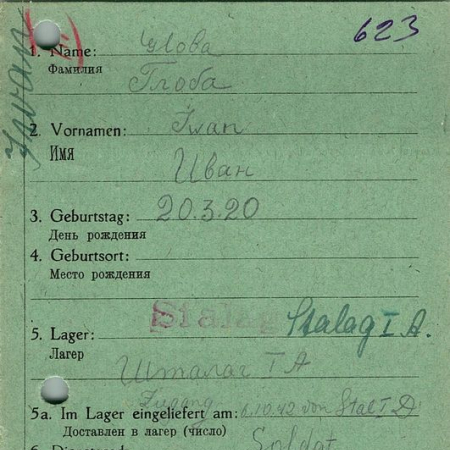 623
Iwan
1. Name: Globa
Фамилия
Глоба
2. Vornamen: Iwan
Имя
Иван
3. Geburtstag: 20.3.20
День рождения
4. Geburtsort:
Место рождения
Stalag
5. Lager: Stalag I A.
Лагер
Шталаг I A
Zugang
5a. Im Lager eingeliefert am: 6.10.42 von Stal I D
Доставлен в лагер (число)
Soldat